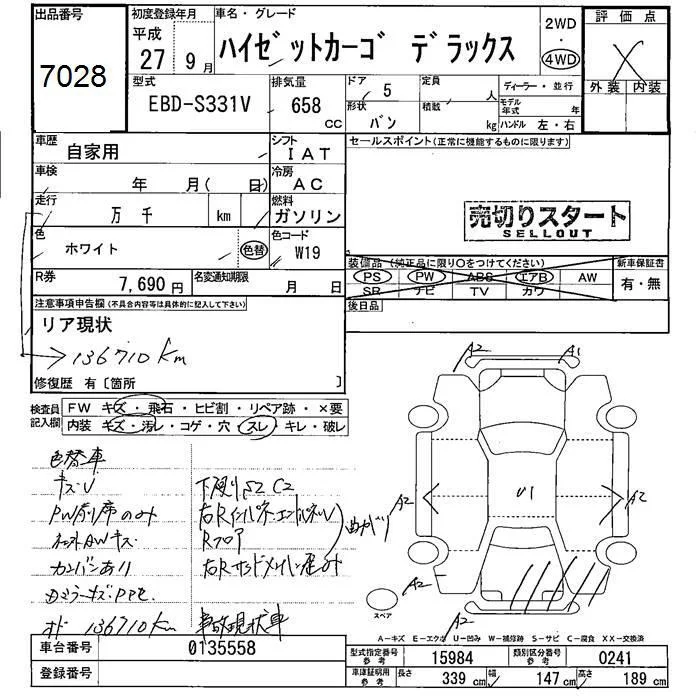 出品番号
7028
初度登録年月
平成
27年 9月
車名・グレード
ハイゼットカーゴ デラックス
2WD
・
4WD
評価点
X
外装 内装
型式
EBD-S331V
排気量
658
CC
ドア
5
形状
バン
定員
人
積載
kg
ディーラー・並行
モデル年式 年
ハンドル 左・右
車歴
自家用
シフト
IAT
セールスポイント(正常に機能するものに限ります)
車検
年 月( 日)
冷房
AC
走行
万 千 km
燃料
ガソリン
売切りスタート
SELLOUT
色
ホワイト
色替
色コード
W19
装備品(純正品に限り○をつけてください)
PS PW ABS エアB AW
SR ナビ TV カワ
新車保証書
有・無
R券
7,690円
名変通知期限
月 日
後日品
注意事項申告欄(不具合内容等は具体的に記入して下さい)
リア現状
136710 km
修復歴 有〔箇所 〕
検査員記入欄
FW キズ・飛石・ヒビ割・リペア跡・×要
内装 キズ・汚レ・コゲ・穴・スレ・キレ・破レ
色替車
キズU
PW前席のみ
カンバンあり
オド 136710 km
下廻りS2 C2
Rフロア
事故現状車
A2
A1
A2
A2
U1
A2
A2
スペア
A-キズ E-エクボ U-凹み W-補修跡 S-サビ C-腐食 XX-交換済
車台番号
0135558
登録番号
型式指定番号 参考
15984
類別区分番号 参考
0241
車庫証明用 参考
長さ 339 cm
幅 147 cm
高さ 189 cm